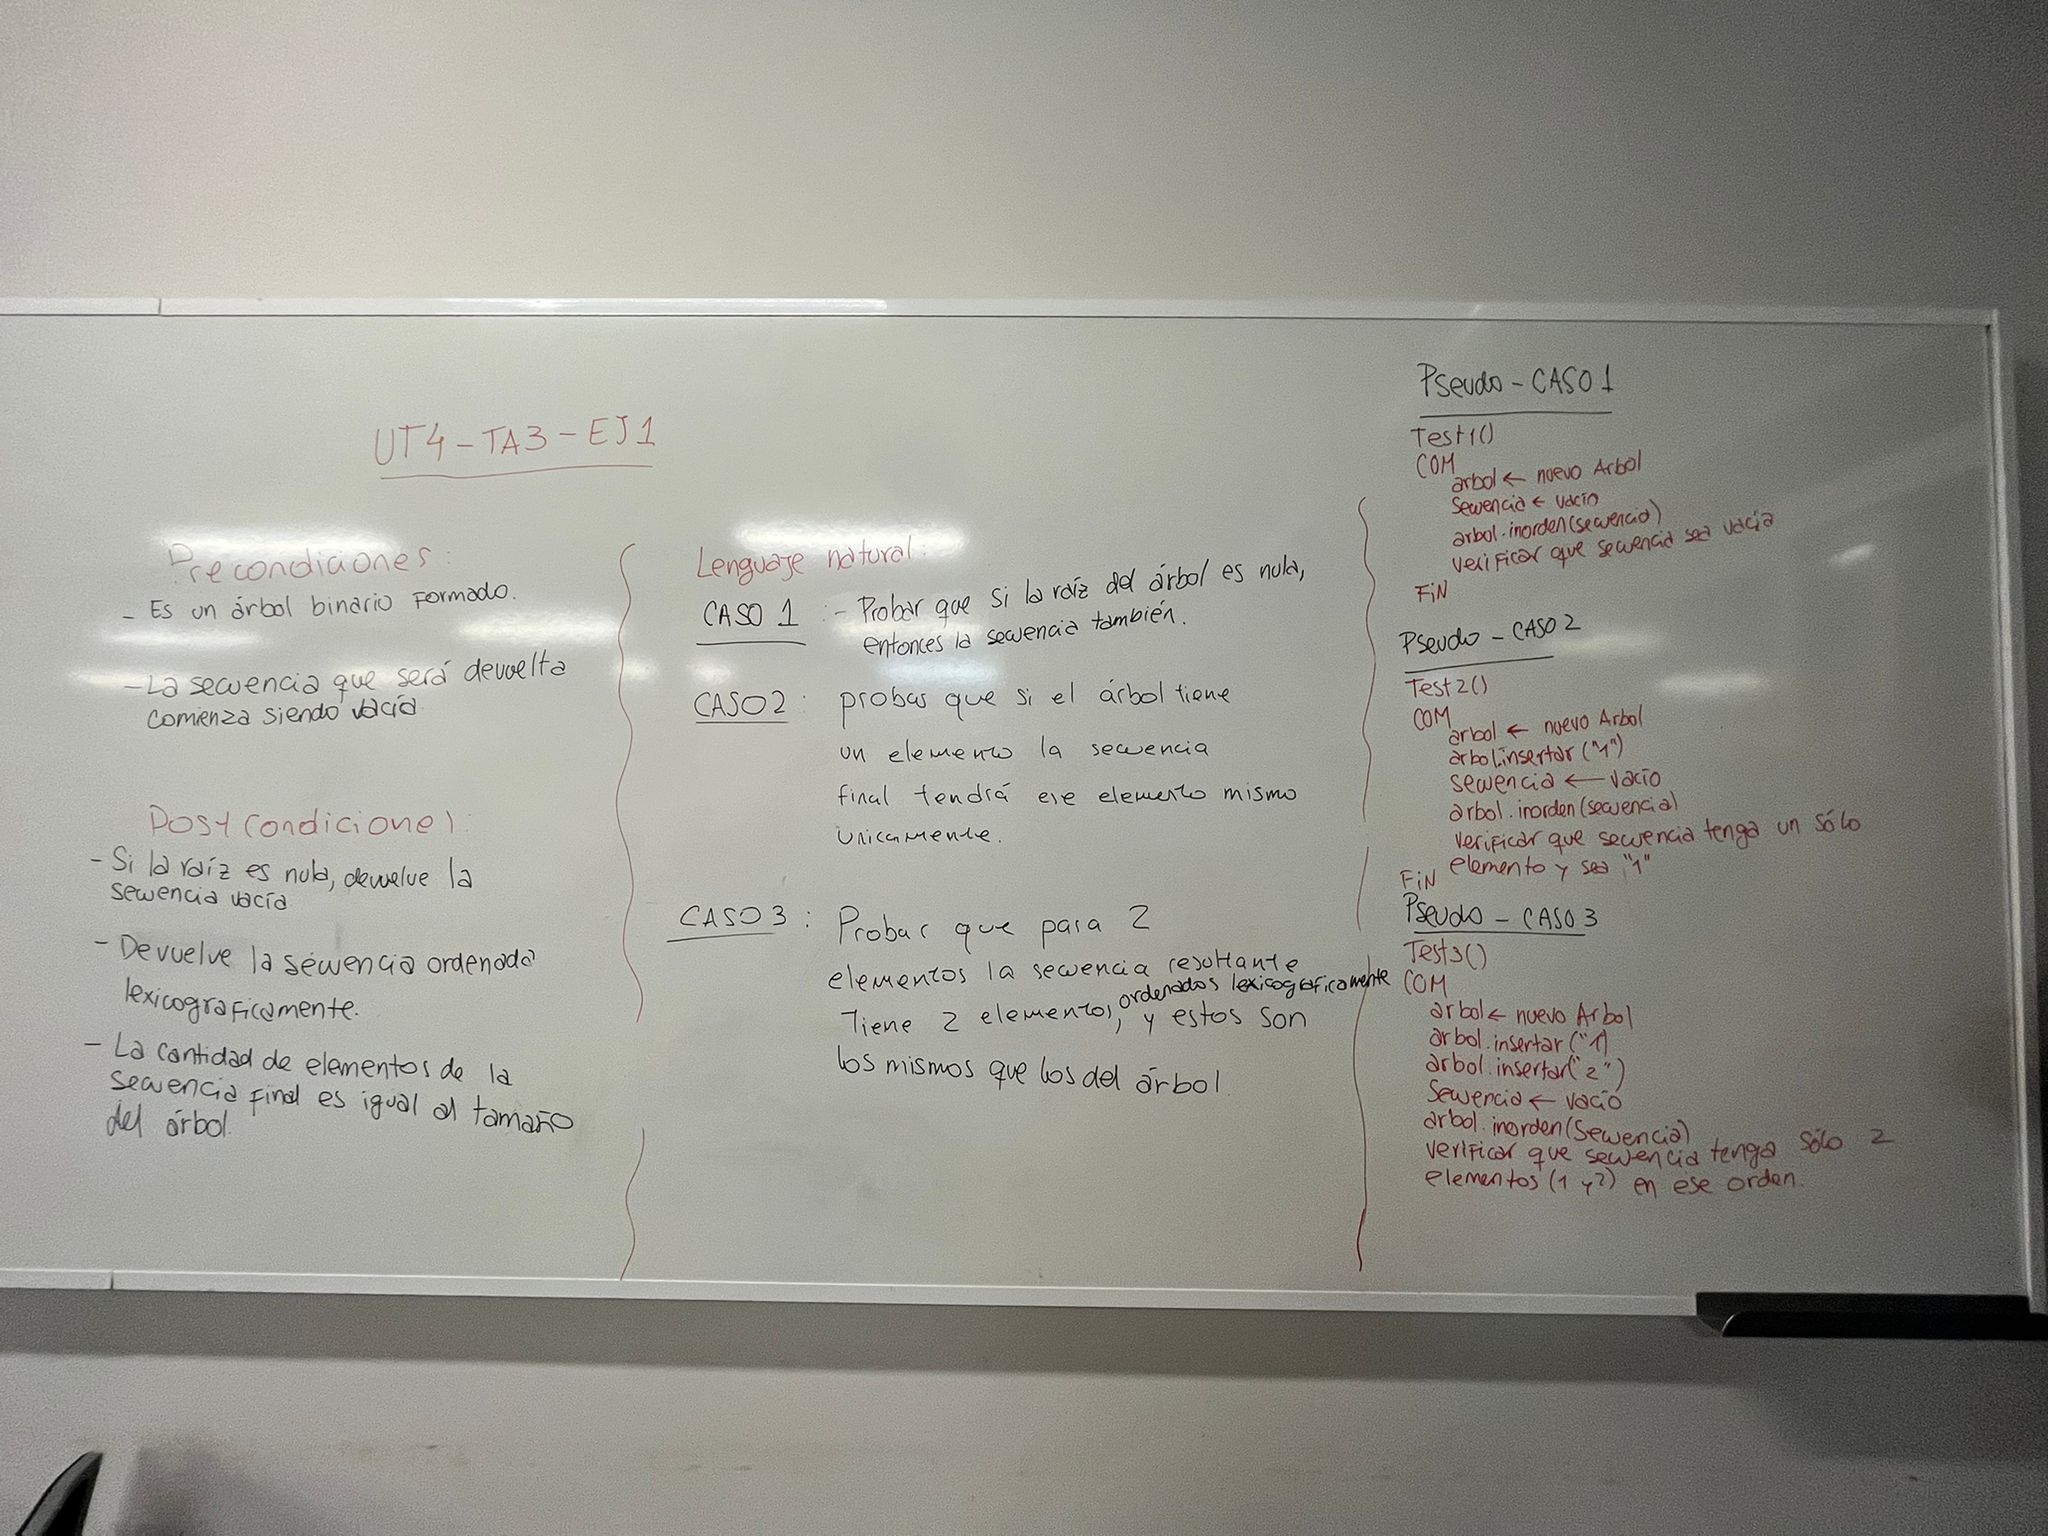 UT4-TA3-EJ1
Precondiciones:
- Es un árbol binario formado.
- La secuencia que será devuelta
comienza siendo vacía.
Postcondiciones:
- Si la raíz es nula, devuelve la
secuencia vacía
- Devuelve la secuencia ordenada
lexicograficamente.
- La cantidad de elementos de la
secuencia final es igual al tamaño
del árbol.
Lenguaje natural:
CASO 1 :- Probar que si la raíz del árbol es nula,
entonces la secuencia también.
CASO2: probar que si el árbol tiene
un elemento la secuencia
final tendrá ese elemento mismo
únicamente.
CASO3: Probar que para 2
elementos la secuencia resultante
tiene 2 elementos, ordenados lexicograficamente y estos son
los mismos que los del árbol.
Pseudo - CASO1
Test1()
COM
arbol ← nuevo Arbol
secuencia ← vacío
arbol.inorden(secuencia)
verificar que secuencia sea vacía
FIN
Pseudo - CASO2
Test2()
COM
arbol ← nuevo Arbol
arbol.insertar("1")
secuencia ← vacío
arbol.inorden(secuencia)
verificar que secuencia tenga un sólo
elemento y sea "1"
FIN
Pseudo - CASO3
Test3()
COM
arbol ← nuevo Arbol
arbol.insertar("1)
arbol.insertar("2")
Secuencia ← vacío
arbol.inorden(Secuencia)
verificar que secuencia tenga sólo 2
elementos (1 y 2) en ese orden.